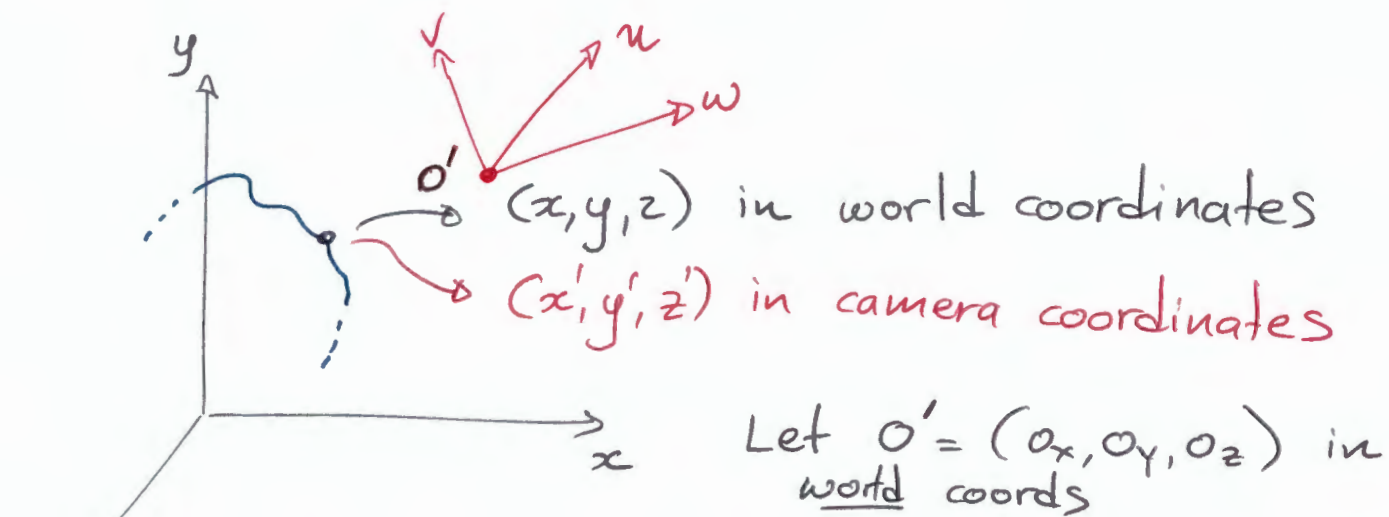 y
v
u
w
O'
(x,y,z) in world coordinates
(x',y',z') in camera coordinates
x
Let O' = (o_x, o_y, o_z) in
world coords